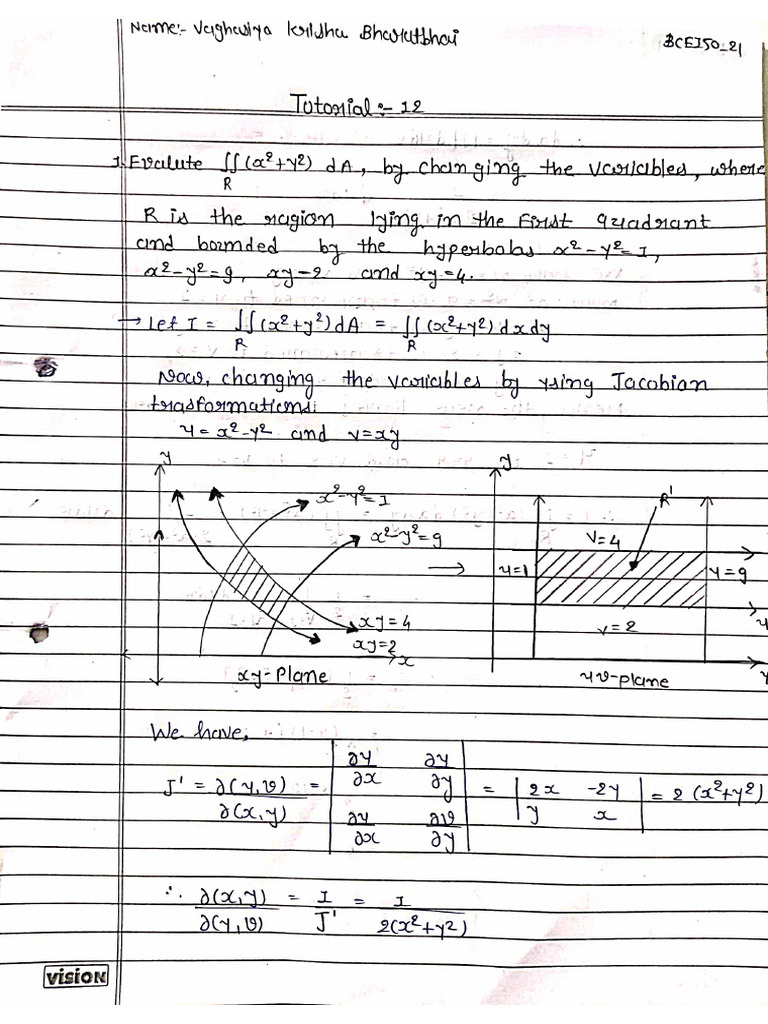 Name:- Vaghasiya Krisha Bharatbhai
BCE150_21
Tutorial:- 12
1. Evalute ∬(x²+y²) dA, by changing the variables, where
R
R is the ragion lying in the first quadrant
and bounded by the hyperbolas x²-y²=1,
x²-y²=9, xy=2 and xy=4.
→ Let I = ∬(x²+y²)dA = ∬(x²+y²) dxdy
R R
Now, changing the variables by using Jacobian
trasformations:
u=x²-y² and v=xy
y y
x²-y²=1 R'
x²-y²=9 v=4
→ u=1 u=9
xy=4 v=2 u
xy=2 x
xy-Plane uv-plane
We have,
J' = ∂(u,v)/∂(x,y) = | ∂u/∂x ∂u/∂y ; ∂v/∂x ∂v/∂y | = | 2x -2y ; y x | = 2(x²+y²)
∴ ∂(x,y)/∂(u,v) = 1/J' = 1/2(x²+y²)
vision